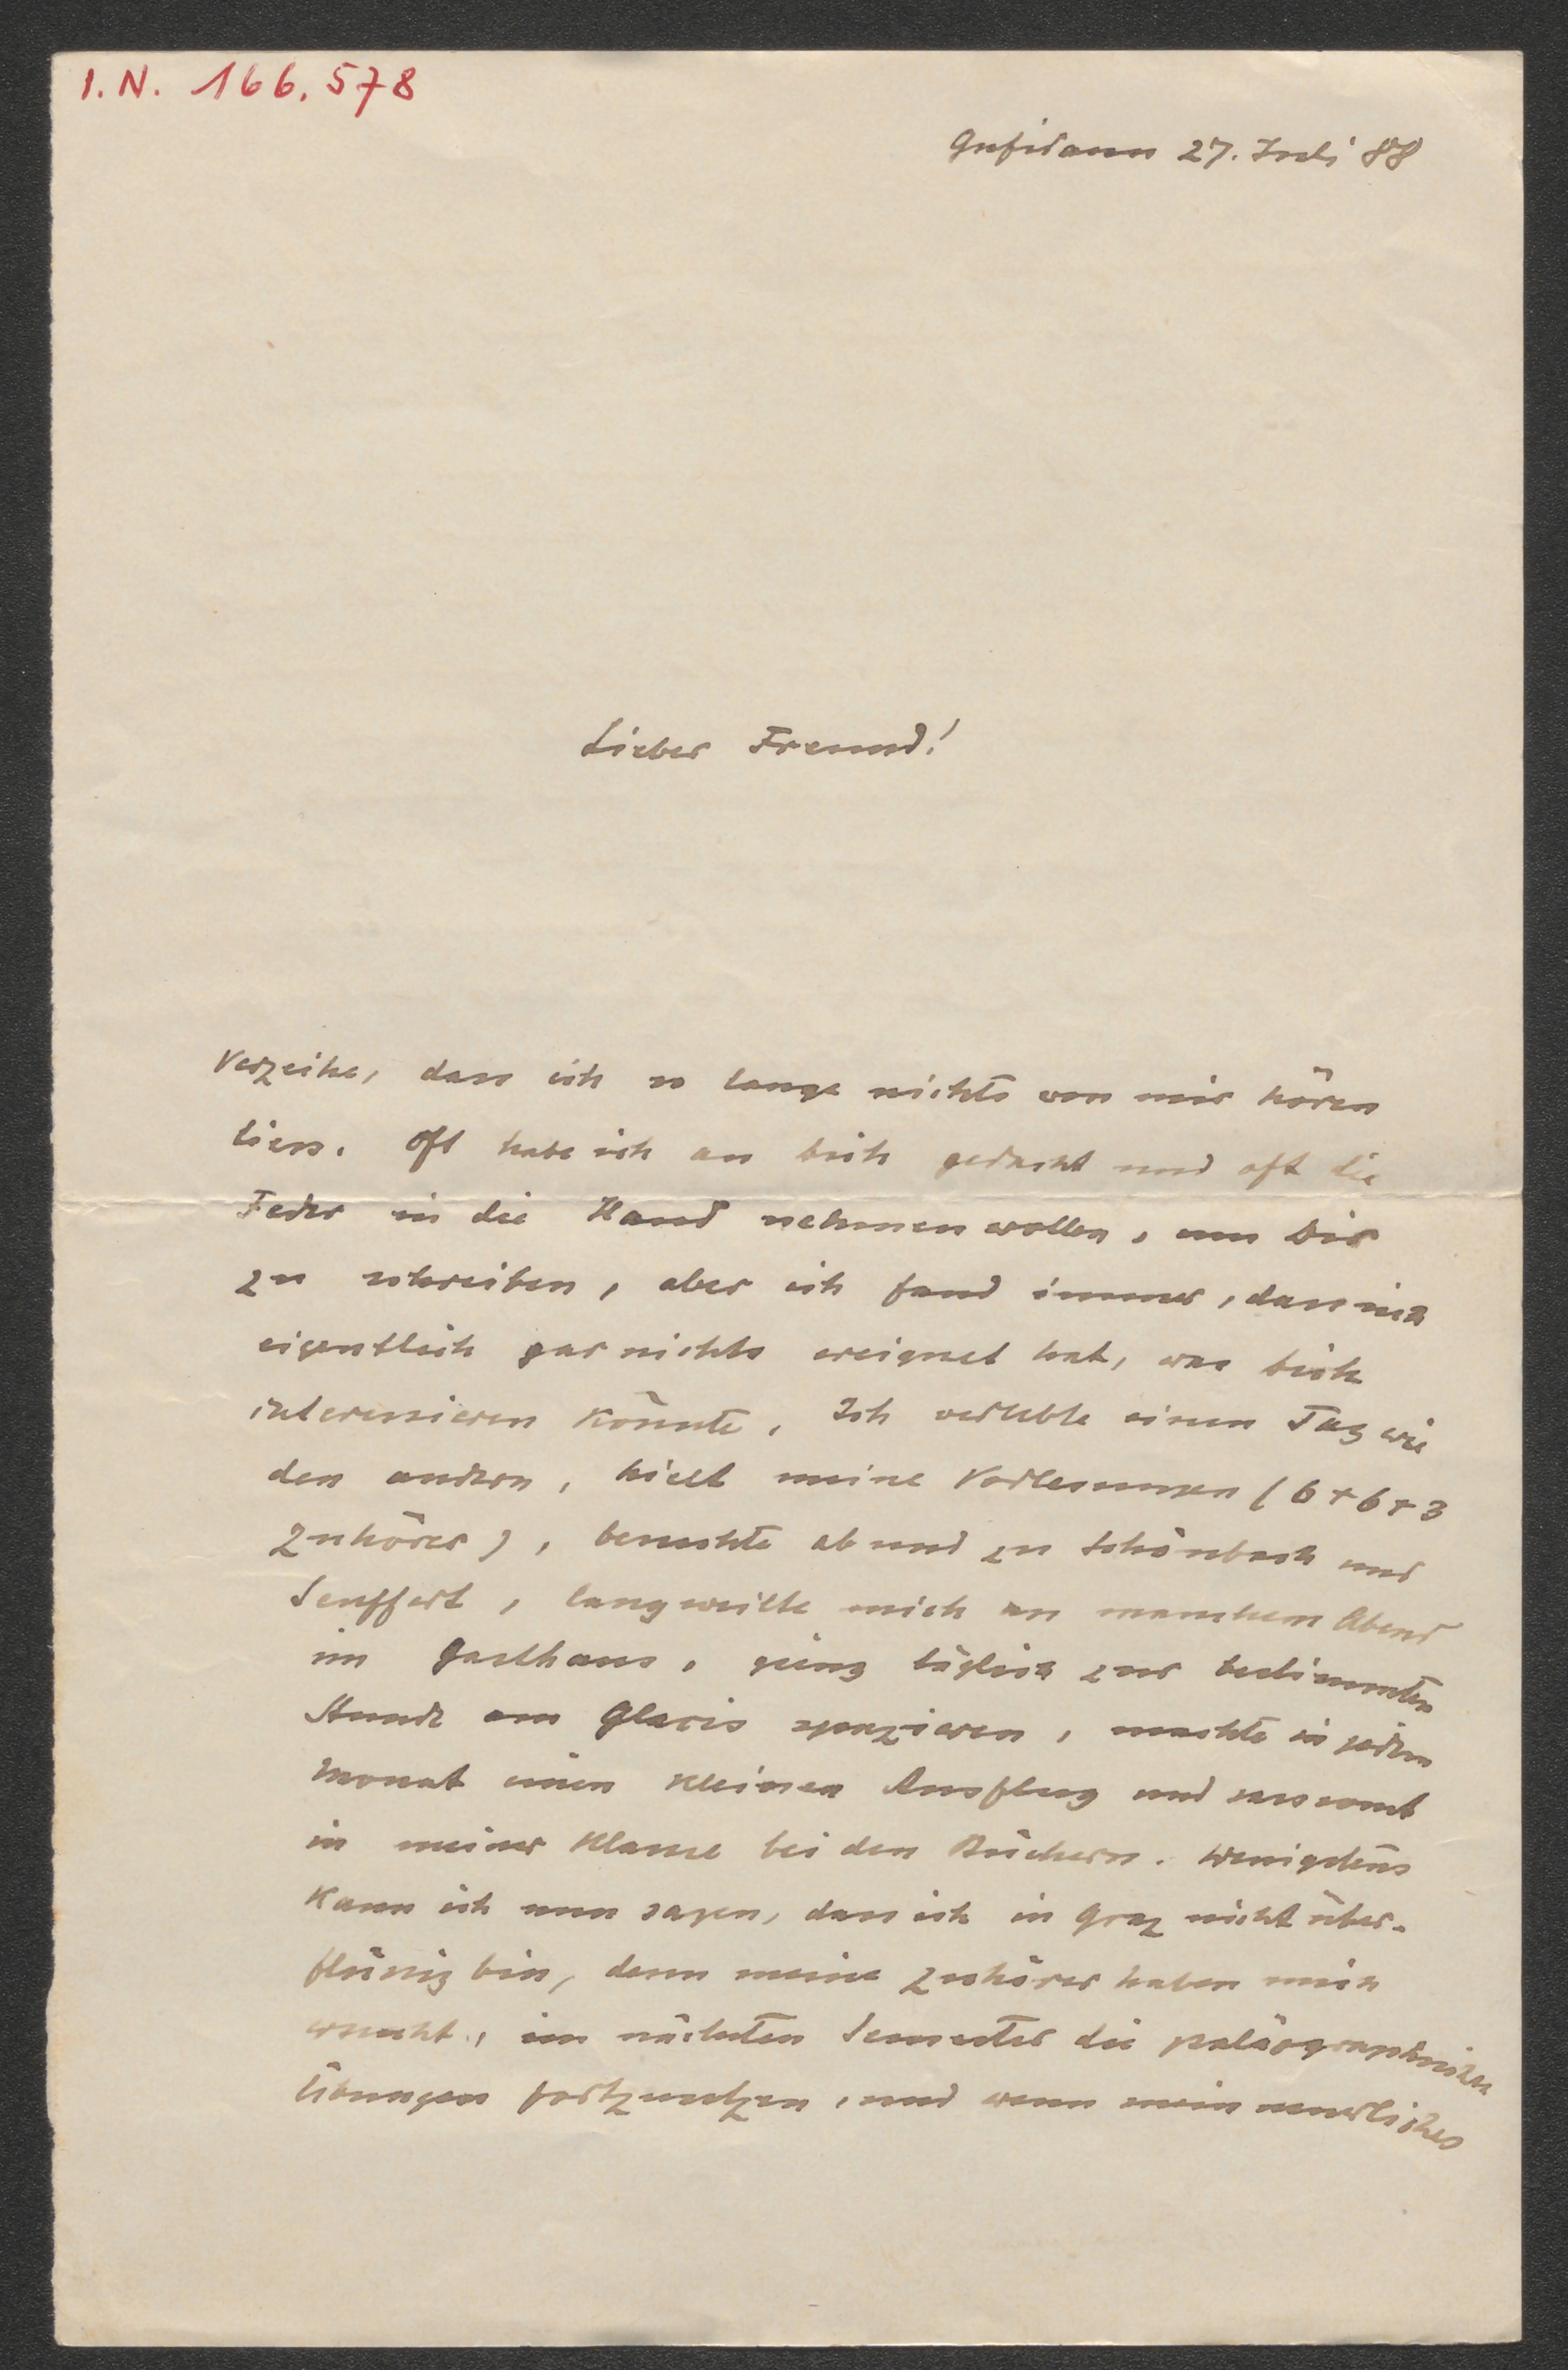 I.N. 166.578
Gufidaun 27. Juli 88
Lieber Freund!
Verzeihe, dass ich so lange nichts von mir hören
liess. Oft habe ich an Dich gedacht und oft die
Feder in die Hand nehmen wollen, um Dir
zu schreiben, aber ich fand immer, dass sich
eigentlich gar nichts ereignet hat, was Dich
interessieren könnte. Ich verlebte einen Tag wie
den andern, hielt meine Vorlesungen (6+6+3
Zuhörer), besuchte ab und zu Schönbach und
Seuffert, langweilte mich an manchem Abend
im Gasthaus, ging täglich zur bestimmten
Stunde am Glacis spazieren, machte in jedem
Monat einen kleinen Ausflug und sass sonst
in meiner Klause bei den Büchern. Wenigstens
kann ich nun sagen, dass ich in Graz nicht über-
flüssig bin, denn meine Zuhörer haben mich
ersucht, im nächsten Semester die paläographischen
Übungen fortzusetzen, und wenn mein neuerliches